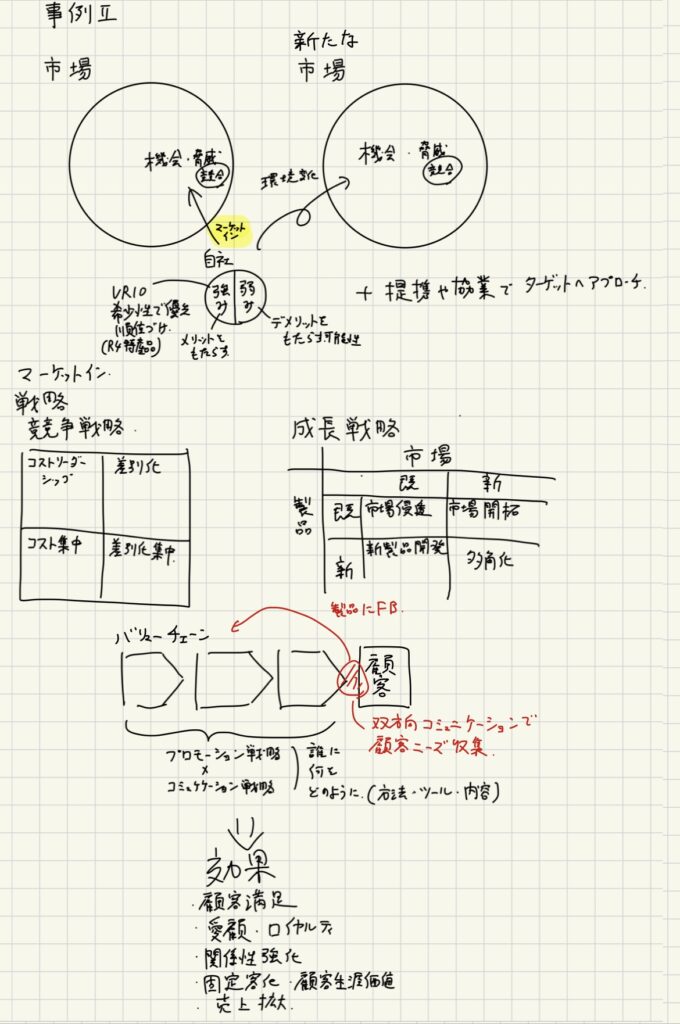 事例Ⅱ
市場
新たな
市場
機会・脅威
競合
機会・脅威
競合
環境変化
マーケット
イン
自社
強み
弱み
VRIO
希少性で優先
順位づけ
(R4特産品)
メリットを
もたらす
デメリットを
もたらす可能性
+ 提携や協業でターゲットへアプローチ.
マーケットイン.
戦略
競争戦略.
コストリーダー
シップ
差別化
コスト集中
差別化集中
成長戦略
市場
既
新
製品
既
市場浸透
市場開拓
新
新製品開発
多角化
製品にFB.
バリューチェーン
顧客
双方向コミュニケーションで
顧客ニーズ収集.
プロモーション戦略
×
コミュケケーション戦略
誰に
何を
どのように.(方法・ツール・内容)
効果
・顧客満足
・愛顧・ロイヤルティ
・関係性強化
・固定客化・顧客生涯価値
・売上拡大.